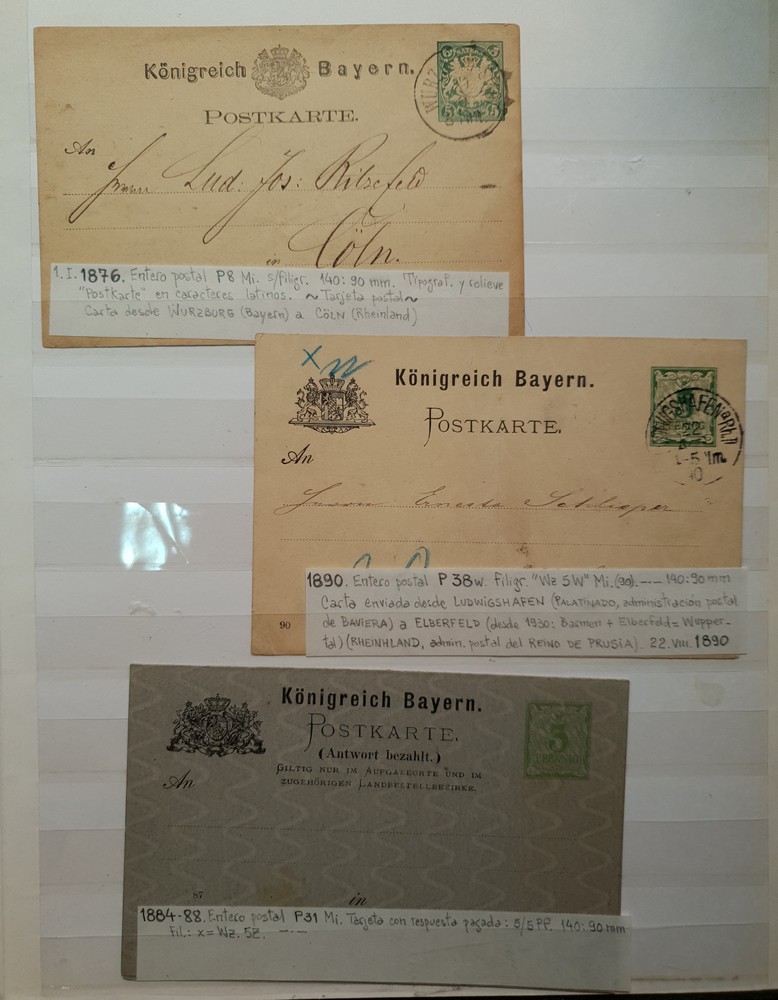 Königreich Bayern.
POSTKARTE.
An
Herrn Lud: Jos: Ritzefeld
in Cöln.
1.I.1876. Entero postal P8 Mi. s/filigr. 140:90 mm. Tipograf. y relieve
"Postkarte" en caracteres latinos. ~ Tarjeta postal ~
Carta desde WURZBURG (Bayern) a CÖLN (Rheinland)
Königreich Bayern.
POSTKARTE.
LUDWIGSHAFEN a/Rh. II
An
Herrn Ernesto Schlieper
1890. Entero postal P38w. Filigr. "Wz 5W" Mi.(90). –·– 140:90 mm
Carta enviada desde LUDWIGSHAFEN (PALATINADO, administración postal
de BAVIERA) a ELBERFELD (desde 1930: Barmen + Elberfeld = Wupper-
tal) (RHEINHLAND, admin. postal del REINO DE PRUSIA). 22.VIII.1890
90
Königreich Bayern.
POSTKARTE.
(Antwort bezahlt.)
GILTIG NUR IM AUFGABEORTE UND IM
ZUGEHÖRIGEN LANDBESTELLBEZIRKE.
5
PFENNIG
An
87
in
1884-88. Entero postal P31 Mi. Tarjeta con respuesta pagada: 5/5 Pf. 140:90 mm
Fil.: x = Wz. 5Z. –·–